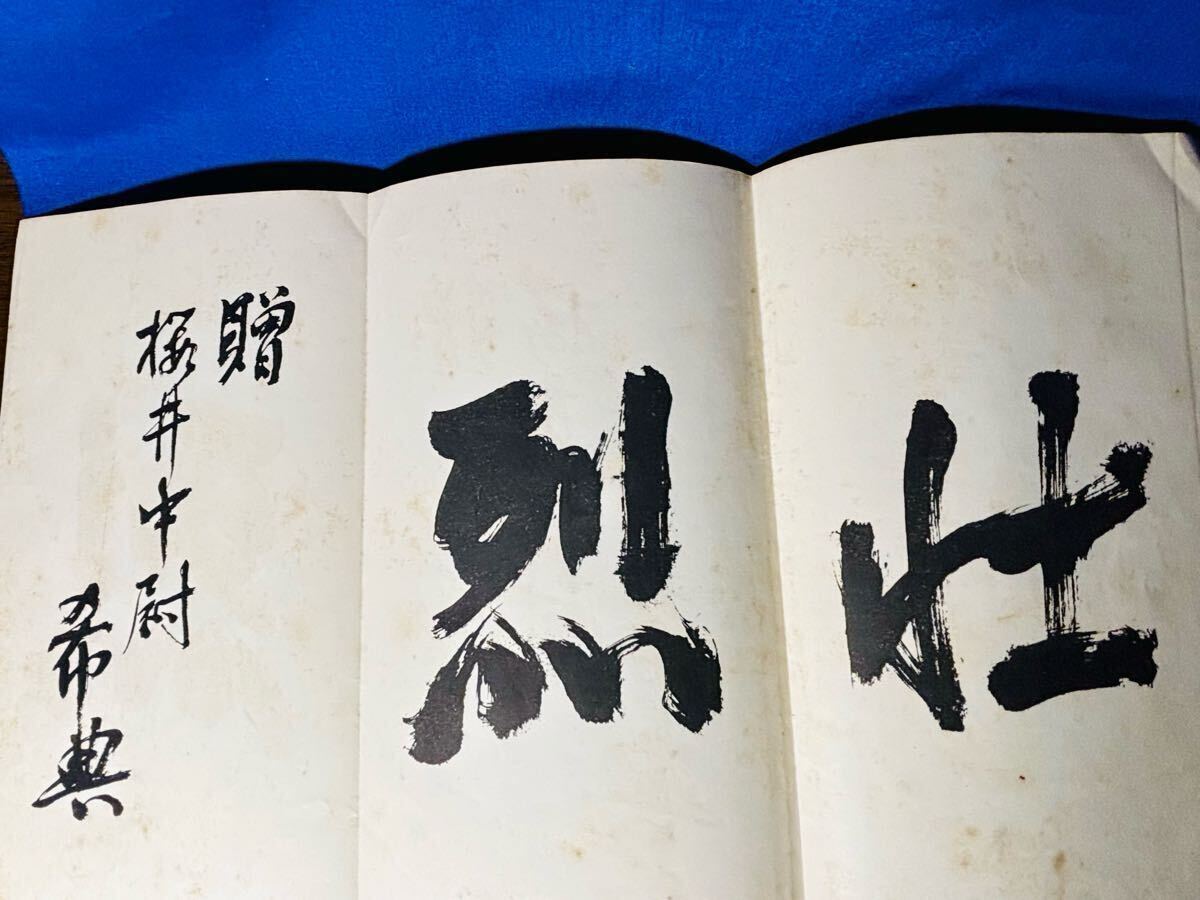 壮烈
贈
桜井中尉
希典